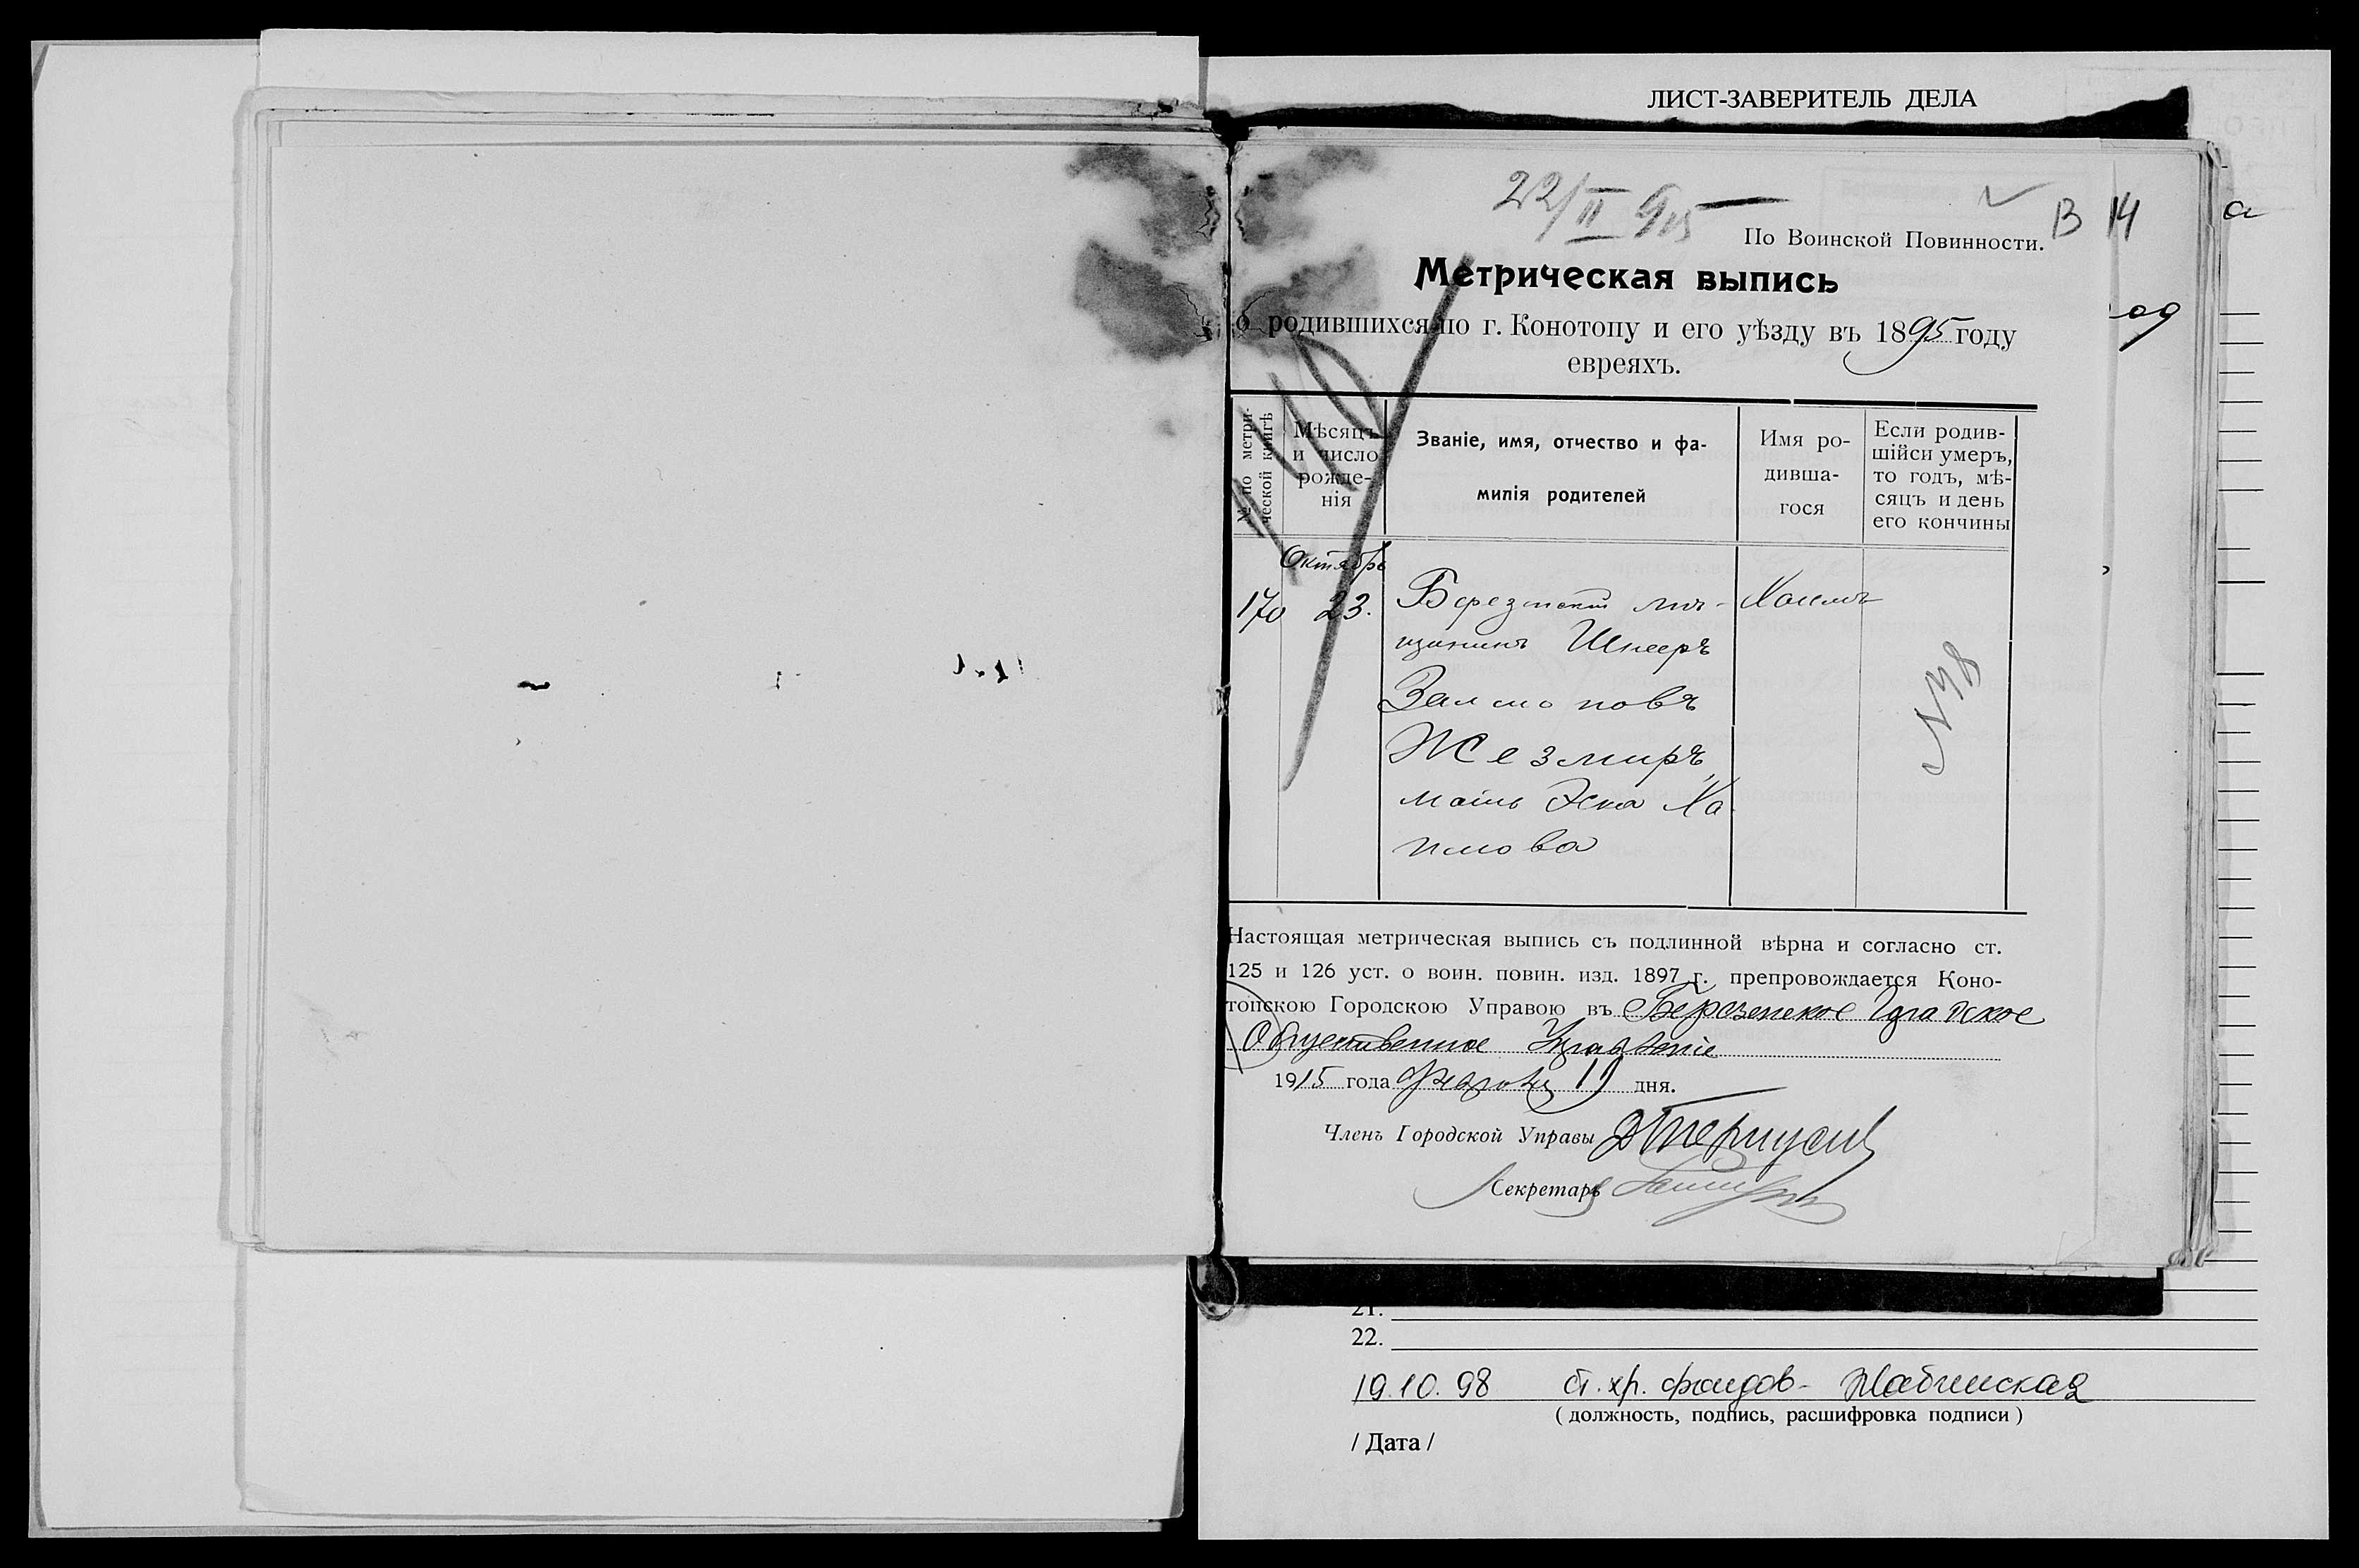 ЛИСТ-ЗАВЕРИТЕЛЬ ДЕЛА
22/II 915
В 14
По Воинской Повинности.
Метрическая выпись
о родившихся по г. Конотопу и его уѣзду въ 1895 году
евреяхъ.
№ по метри-
ческой книгѣ
Мѣсяцъ
и число
рожде-
нія
Званіе, имя, отчество и фа-
милія родителей
Имя ро-
дивша-
гося
Если родив-
шійси умеръ,
то годъ, мѣ-
сяцъ и день
его кончины
Октябрь
170 23. Березнскій мѣ- Хаимъ
щанинъ Шнееръ
Залмановъ
Жезмиръ,
мать Эска Ха
имова
N 78
Настоящая метрическая выпись съ подлинной вѣрна и согласно ст.
125 и 126 уст. о воин. повин. изд. 1897 г. препровождается Коно-
топскою Городскою Управою въ Березенское Градское
Общественное Управленіе
1915 года 19 дня.
Членъ Городской Управы
Секретарь
21.
22.
19.10.98 ст. хр. фондов-
( должность, подпись, расшифровка подписи )
/ Дата /